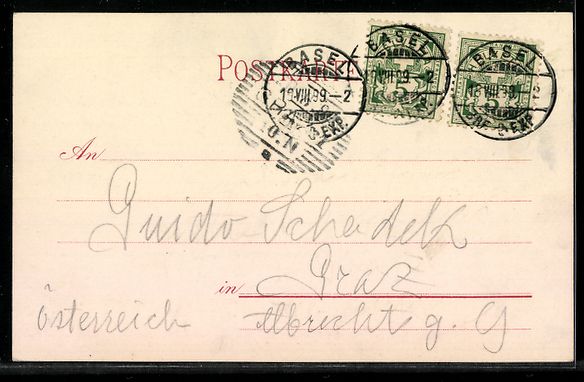 POSTKARTE
BASEL
18.VIII.99.-2
BRF. EXP.
BASEL
18.VIII.99.-2
5
BASEL
18.VIII.99.-2
BRF. EXP.
5
An
Guido Schadek
in Graz
Österreich Albrechtg. 9